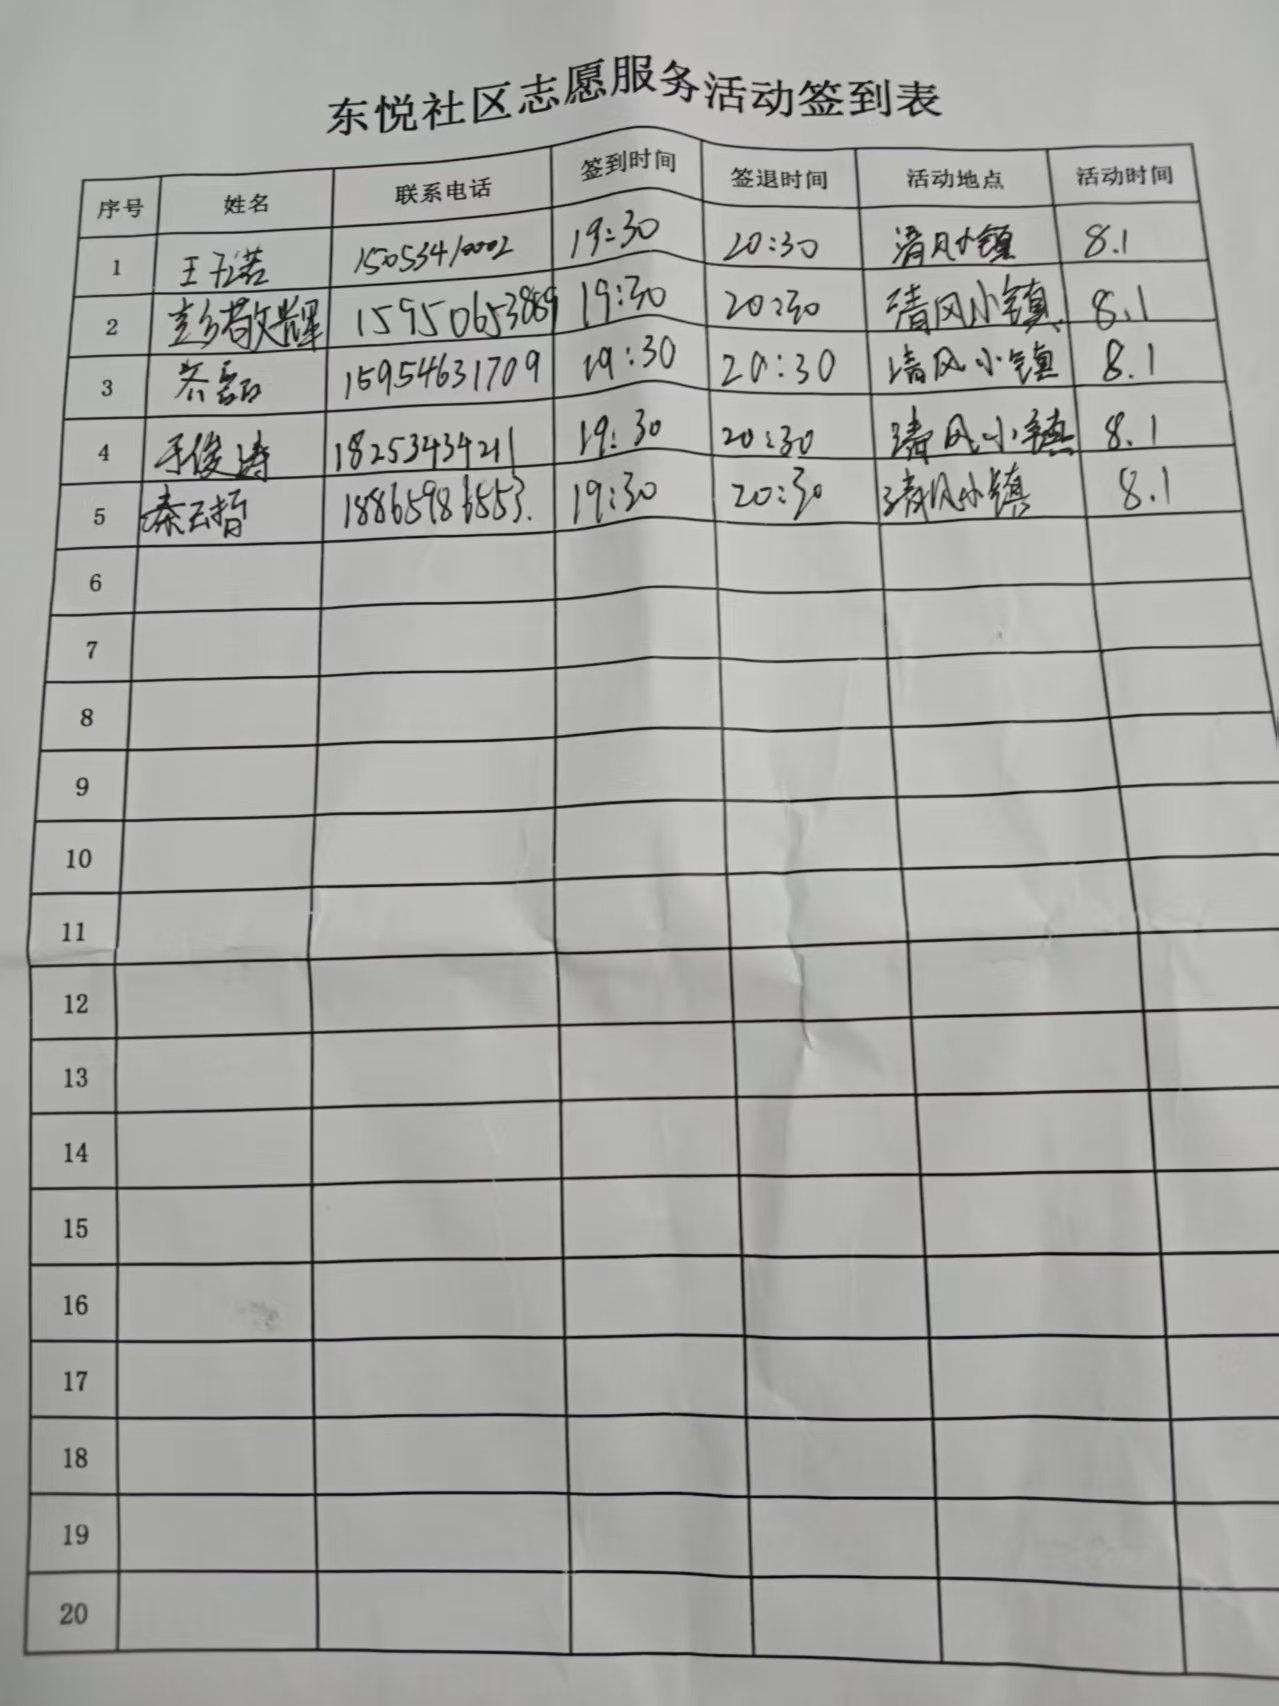 东悦社区志愿服务活动签到表
序号 姓名 联系电话 签到时间 签退时间 活动地点 活动时间
1 王子诺 15053410002 19:30 20:30 清风小镇 8.1
2 彭敬辉 15950653869 19:30 20:30 清风小镇 8.1
3 15954631709 19:30 20:30 清风小镇 8.1
4 于俊涛 18253434211 19:30 20:30 清风小镇 8.1
5 秦云哲 18865986553. 19:30 20:30 清风小镇 8.1
6
7
8
9
10
11
12
13
14
15
16
17
18
19
20